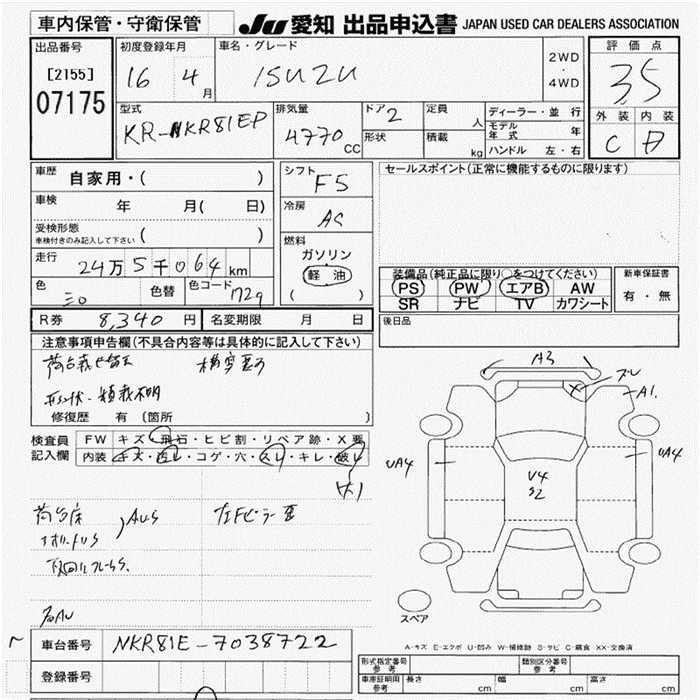 車内保管・守衛保管
JU 愛知 出品申込書 JAPAN USED CAR DEALERS ASSOCIATION
出品番号
[2155]
07175
初度登録年月
16 4月
車名・グレード
ISUZU
2WD
・
4WD
評価点
3.5
外装 内装
C D
型式
KR-NKR81EP
排気量
4770 CC
ドア 2
形状
定員 人
積載 kg
ディーラー・並行
モデル年式 年
ハンドル 左・右
車歴 自家用・( )
車検 年 月( 日)
受検形態
車検付きのみ記入して下さい ( )
走行 24万5千064km
色 色替 色コード 729
シフト F5
冷房 AC
燃料
ガソリン
軽油
( )
セールスポイント(正常に機能するものに限ります)
装備品(純正品に限り○をつけてください)
PS PW エアB AW
SR ナビ TV カワシート
新車保証書
有・無
R券 8,340円 名変期限 月 日
後日品
注意事項申告欄(不具合内容等は具体的に記入して下さい)
修復歴 有(箇所 )
検査員記入欄
FW キズ・飛石・ヒビ割・リペア跡・X要
内装 キズ・汚レ・コゲ・穴・スレ・キレ・破レ
大1
荷台床
AUS
A3
ズレ
A1
UA4
UA4
U4
S2
スペア
A-キズ E-エクボ U-凹み W-補修跡 S-サビ C-腐食 XX-交換済
車台番号 NKR81E-7038722
登録番号
形式指定番号 参考
類別区分番号 参考
車庫証明用 参考
長さ cm 幅 cm 高さ cm